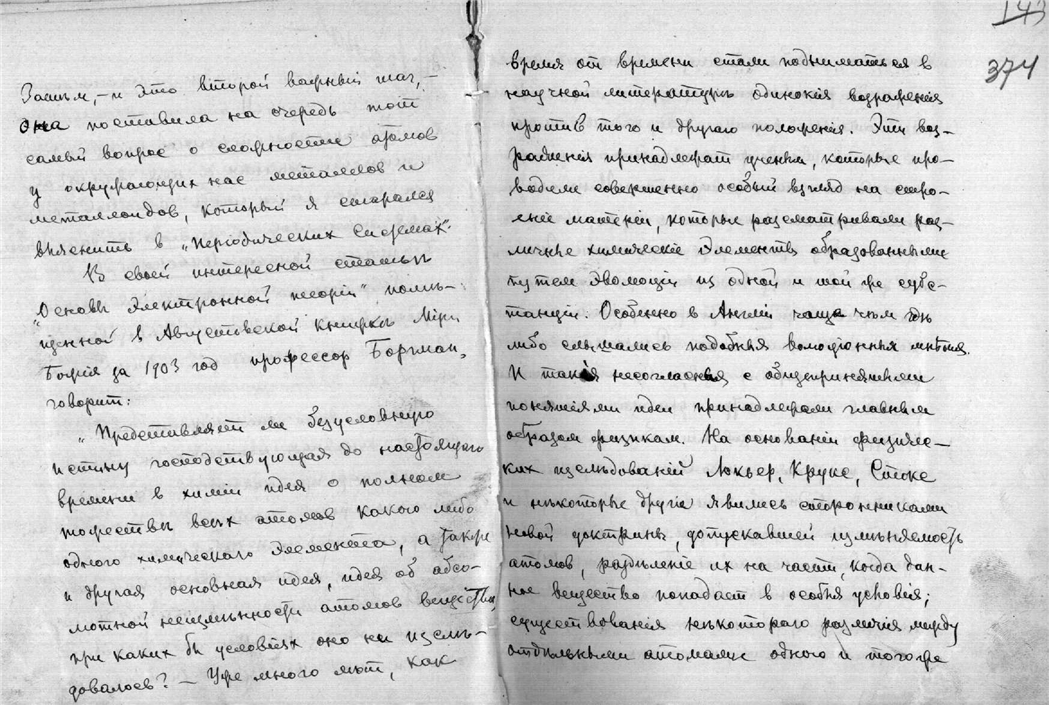 Затѣмъ, – и это второй важный шаг, –
она поставила на очередь тот
самый вопрос о сложности атомов
у окружающих нас металлов и
металлоидов, который я старался
выяснить в „Періодических Системах“.
В своей интересной статьѣ
„Основы Электронной теоріи“ помѣ-
щенной в Августовской книжкѣ Міра
Божія за 1903 год профессор Боргман,
говорит:
„Представляет ли безусловную
истину господствующая до настоящаго
времени в химіи идея о полном
тожествѣ всѣх атомов какого либо
одного химическаго элемента, а также
и другая основная идея, идея об абсо-
лютной неизмѣнности атомов вещества,
при каких бы условіях оно ни изслѣ-
довалось? – Уже много лѣт, как
143
374
время от времени стали подниматься в
научной литературѣ одинокія возраженія
против того и другаго положенія. Эти воз-
раженія принадлежат ученым, которые про-
водили совершенно особый взгляд на строе-
ніе матеріи, которые разсматривали раз-
личные химическіе элементы образованными
путем эволюціи из одной и той же субс-
танціи. Особенно в Англіи чаще чѣм гдѣ
либо слышались подобныя эволюціонныя мнѣнія.
И такія несогласныя с общепринятыми
понятіями идеи принадлежали главным
образом физикам. На основаніи физичес-
ких изслѣдованій Локьер, Крукс, Стокс
и нѣкоторые другіе явились сторонниками
новой доктрины, допускавшей измѣняемость
атомов, раздѣленіе их на части, когда дан-
ное вещество попадает в особыя условія;
существованія нѣкотораго различія между
отдѣльными атомами одного и того же